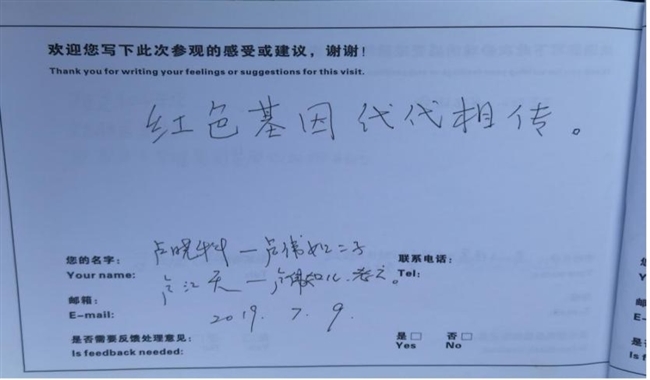 欢迎您写下此次参观的感受或建议，谢谢！
Thank you for writing your feelings or suggestions for this visit.
红色基因代代相传。
您的名字： 卢晓 一卢伟如二子 联系电话：
Your name: 卢江天一卢伟如 Tel:
邮箱：
E-mail: 2019. 7. 9.
是否需要反馈处理意见： 是□ 否□
Is feedback needed: Yes No
您
Yo
邮
E-
是
Is f